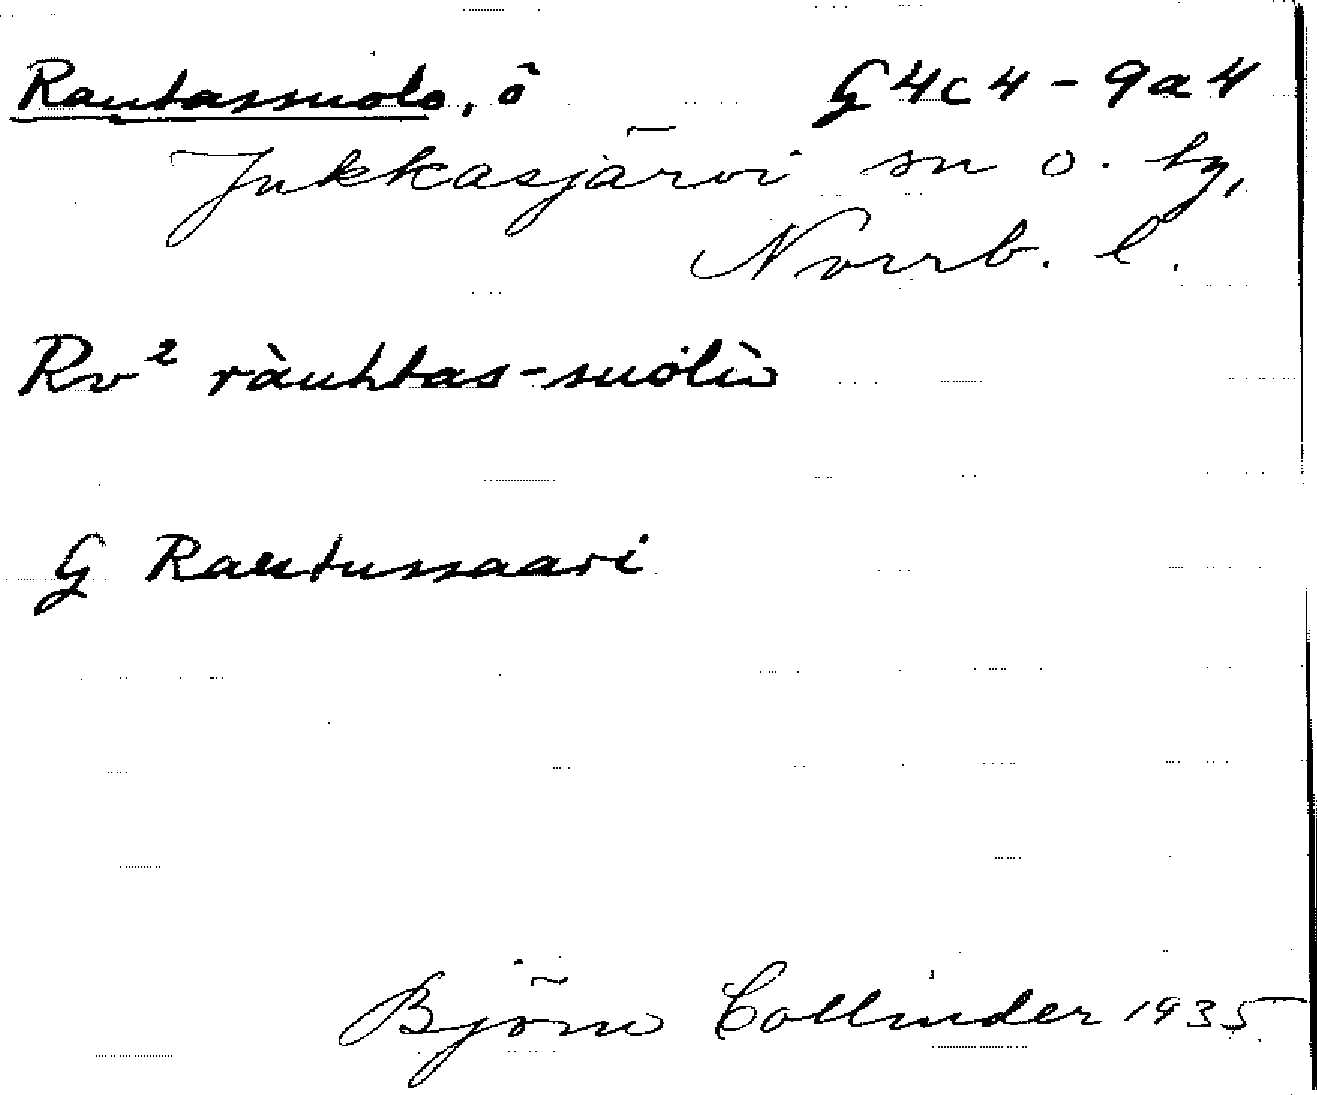 Rautassuolo, ö G4c4-9a4
Jukkasjärvi sn o. tg,
Norrb. l.
Rv² ràuhtas-suoliò
G Rautussaari
Björn Collinder 1935